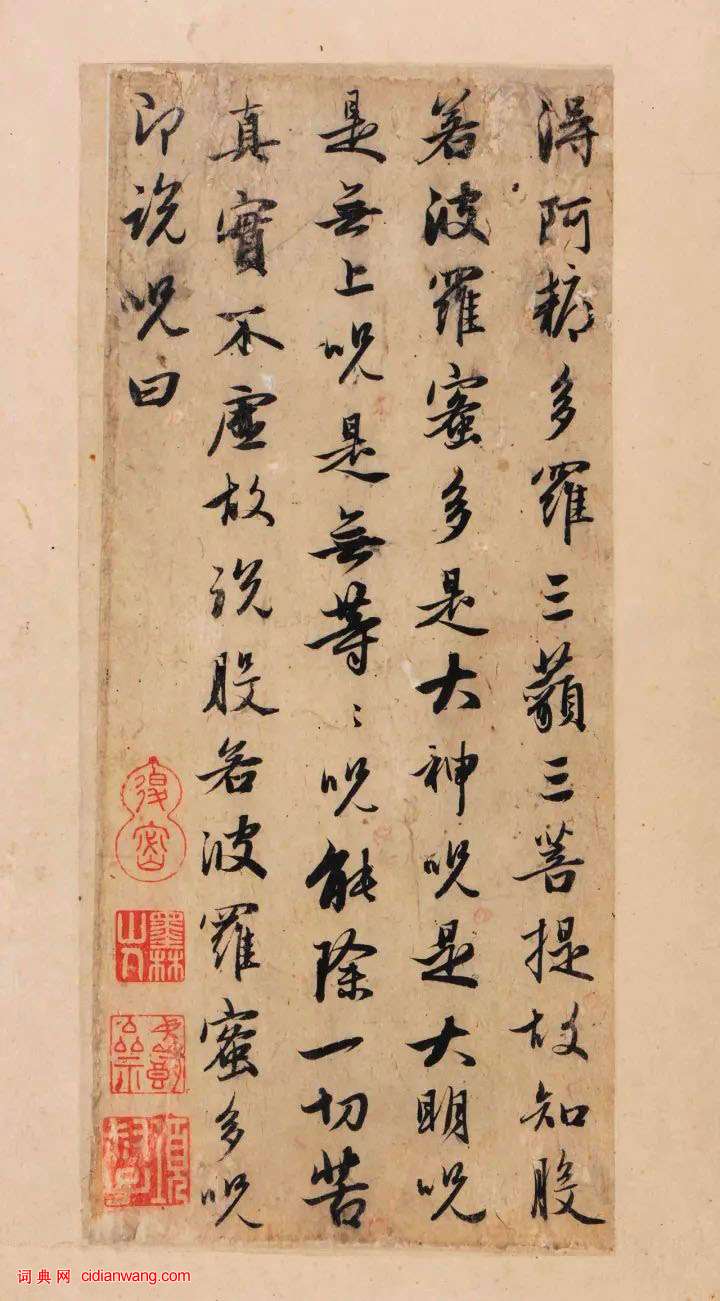 得阿耨多羅三藐三菩提故知般
若波羅蜜多是大神呪是大明呪
是無上呪是無等〻呪能除一切苦
真實不虛故說般若波羅蜜多呪
即說呪曰
墨林山人
词典网 cidianwang.com